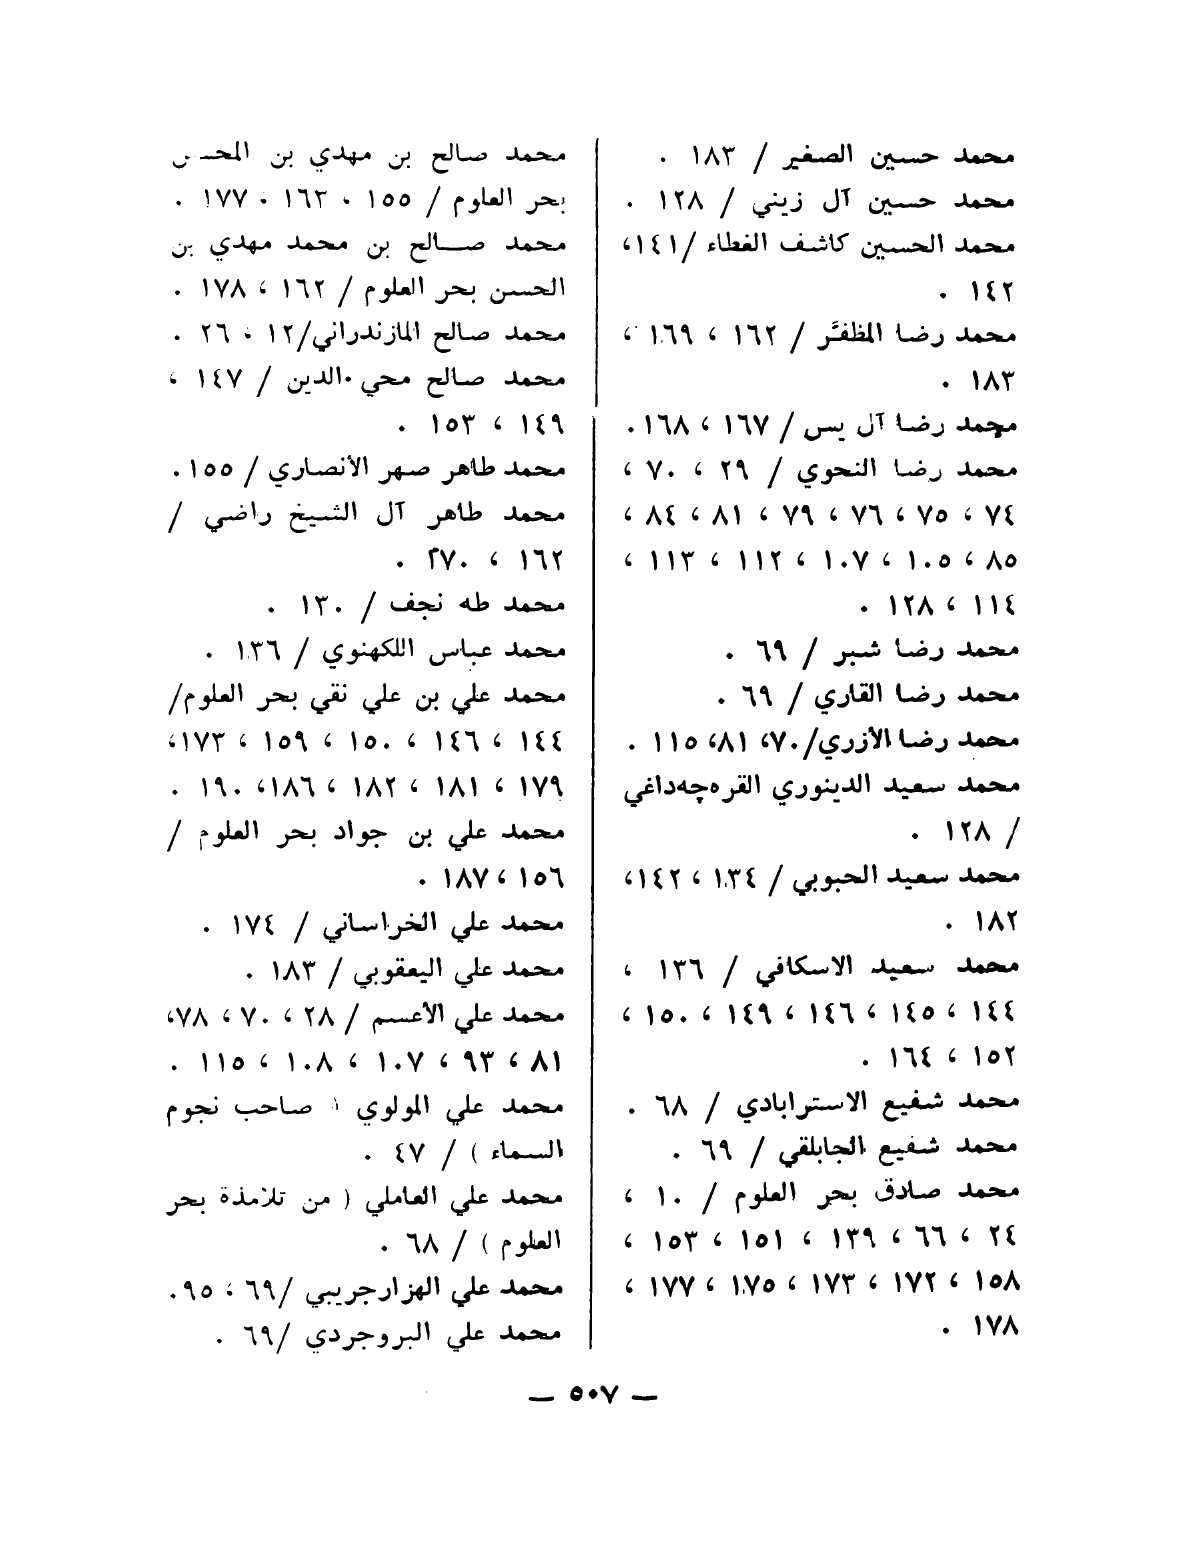 محمد حسين الصغير / ١٨٣ .
محمد حسين آل زيني / ١٢٨ .
محمد الحسين كاشف الغطاء / ١٤١،
١٤٢ .
محمد رضا المظفّر / ١٦٢ ، ١٦٩ ،
١٨٣ .
محمد رضا آل يس / ١٦٧ ، ١٦٨ .
محمد رضا النحوي / ٢٩ ، ٧٠ ،
٧٤ ، ٧٥ ، ٧٦ ، ٧٩ ، ٨١ ، ٨٤ ،
٨٥ ، ١٠٥ ، ١٠٧ ، ١١٢ ، ١١٣ ،
١١٤ ، ١٢٨ .
محمد رضا شبر / ٦٩ .
محمد رضا القاري / ٦٩ .
محمد رضا الأزري/٧٠، ٨١، ١١٥ .
محمد سعيد الدينوري القره‌چه‌داغي
/ ١٢٨ .
محمد سعيد الحبوبي / ١٣٤ ، ١٤٢،
١٨٢ .
محمد سعيد الاسكافي / ١٣٦ ،
١٤٤ ، ١٤٥ ، ١٤٦ ، ١٤٩ ، ١٥٠ ،
١٥٢ ، ١٦٤ .
محمد شفيع الاسترابادي / ٦٨ .
محمد شفيع الجابلقي / ٦٩ .
محمد صادق بحر العلوم / ١٠ ،
٢٤ ، ٦٦ ، ١٣٩ ، ١٥١ ، ١٥٣ ،
١٥٨ ، ١٧٢ ، ١٧٣ ، ١٧٥ ، ١٧٧ ،
١٧٨ .
محمد صالح بن مهدي بن المحسن
بحر العلوم / ١٥٥ ، ١٦٣ ، ١٧٧ .
محمد صالح بن محمد مهدي بن
الحسن بحر العلوم / ١٦٢ ، ١٧٨ .
محمد صالح المازندراني/١٢ ، ٢٦ .
محمد صالح محي الدين / ١٤٧ ،
١٤٩ ، ١٥٣ .
محمد طاهر صهر الأنصاري / ١٥٥ .
محمد طاهر آل الشيخ راضي /
١٦٢ ، ٢٧٠ .
محمد طه نجف / ١٣٠ .
محمد عباس اللكهنوي / ١٣٦ .
محمد علي بن علي نقي بحر العلوم/
١٤٤ ، ١٤٦ ، ١٥٠ ، ١٥٩ ، ١٧٣،
١٧٩ ، ١٨١ ، ١٨٢ ، ١٨٦، ١٩٠ .
محمد علي بن جواد بحر العلوم /
١٥٦ ، ١٨٧ .
محمد علي الخراساني / ١٧٤ .
محمد علي اليعقوبي / ١٨٣ .
محمد علي الأعسم / ٢٨ ، ٧٠ ، ٧٨،
٨١ ، ٩٣ ، ١٠٧ ، ١٠٨ ، ١١٥ .
محمد علي المولوي ( صاحب نجوم
السماء ) / ٤٧ .
محمد علي العاملي ( من تلامذة بحر
العلوم ) / ٦٨ .
محمد علي الهزارجريبي /٦٩ ، ٩٥.
محمد علي البروجردي /٦٩ .
— ٥٠٧ —